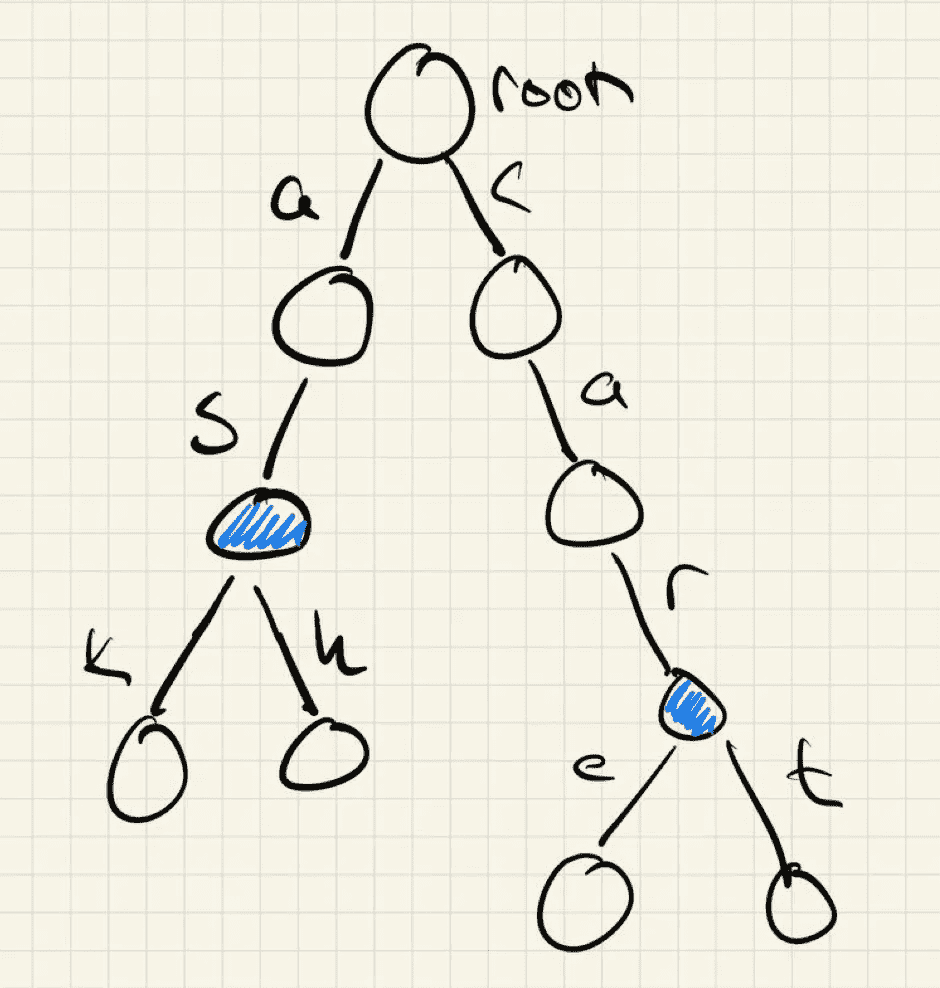 root
a
c
S
a
r
k
h
e
t